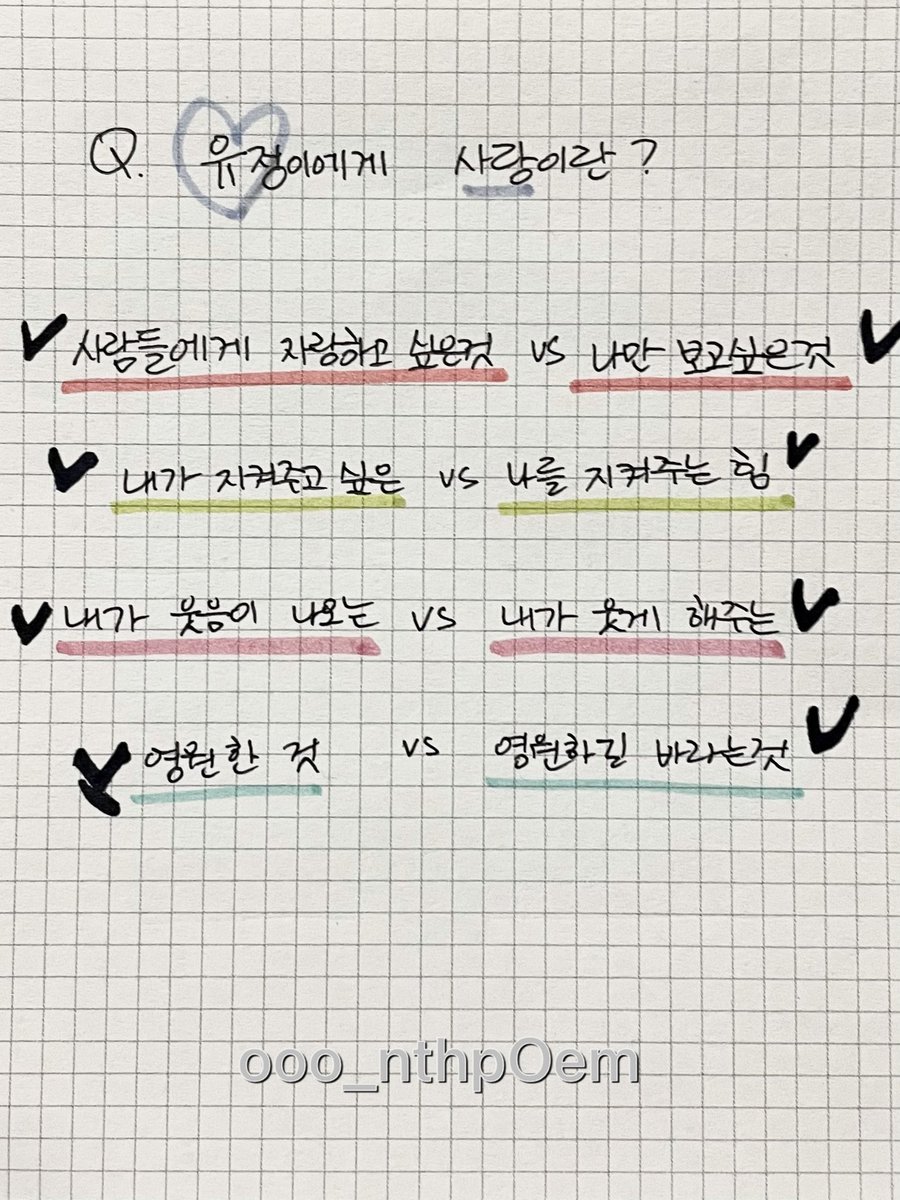 Q. 유정이에게 사랑이란?
사람들에게 자랑하고 싶은것 vs 나만 보고싶은것
내가 지켜주고 싶은 vs 나를 지켜주는 힘
내가 웃음이 나오는 vs 내가 웃게 해주는
영원한 것 vs 영원하길 바라는것
ooo_nthpOem